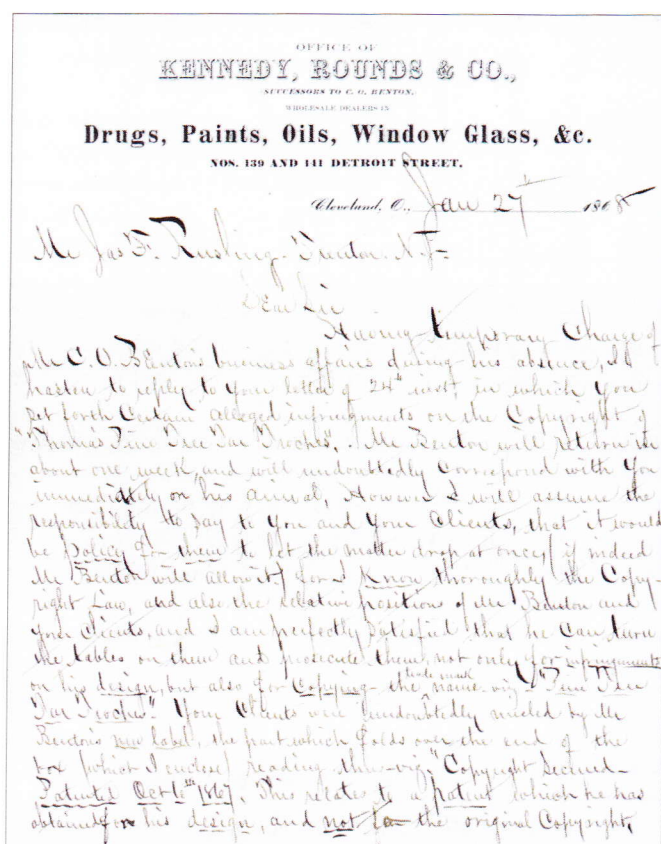 OFFICE OF
KENNEDY, ROUNDS & CO.,
SUCCESSORS TO C. O. BENTON,
WHOLESALE DEALERS IN
Drugs, Paints, Oils, Window Glass, &c.
NOS. 139 AND 141 DETROIT STREET.
Cleveland, O., Jan 27th 1868
Mr Jas F. Rusling. Trenton. N. J-
Dear Sir
Having temporary Charge of
Mr C. O. Benton's business affairs during his absence, I
hasten to reply to your letter of 24th inst, in which you
set forth Certain alleged infringments on the Copyright of
"Thomas Pine Tree Tar Troches". Mr Benton will return in
about one week, and will undoubtedly Correspond with you
immediately on his arrival, However I will assume the
responsibility to say to you and your Clients, that it would
be policy for them to let the matter drop at once, (if indeed
Mr Benton will allow it) for I Know thoroughly the Copy-
right Law, and also the relative position of Mr Benton and
your Clients, and I am perfectly satisfied that he can turn
the tables on them and prosecute them, not only for infringments
on his design, but also for Copying the trade mark name viz "Pine Tree
Tar Troches". Your Clients were undoubtedly misled by Mr
Benton's new label, the part which folds over the end of the
box (which I enclose) reading thus-viz, "Copyright Secured-
Patented Oct 1867. This relates to a patent which he has
obtained for his design, and not to the original Copyright,